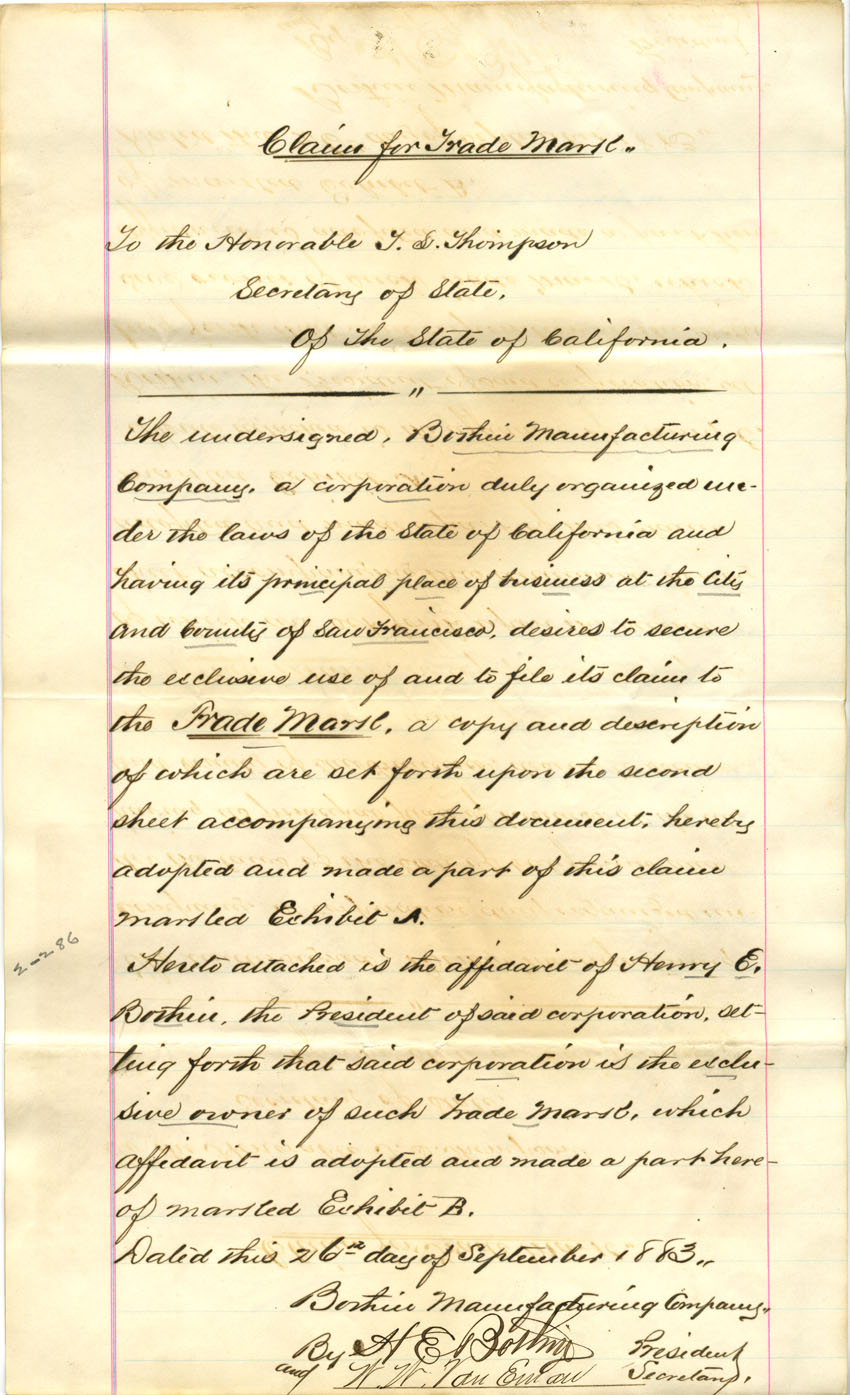 Claim for Trade Mark.
To the Honorable T. L. Thompson
Secretary of State,
Of the State of California.
"
The undersigned, Bothin Manufacturing
Company, a corporation duly organized un-
der the laws of the State of California and
having its principal place of business at the City
and County of San Francisco, desires to secure
the exclusive use of and to file its claim to
the Trade Mark, a copy and description
of which are set forth upon the second
sheet accompanying this document, hereby
adopted and made a part of this claim
marked Exhibit A.
2-286
Hereto attached is the affidavit of Henry E.
Bothin, the President of said corporation, set-
ting forth that said corporation is the exclu-
sive owner of such Trade Mark, which
affidavit is adopted and made a part here-
of marked Exhibit B.
Dated this 26th day of September 1883.
Bothin Manufacturing Company.
By H E Bothin President
and W. W. Van Eman Secretary.